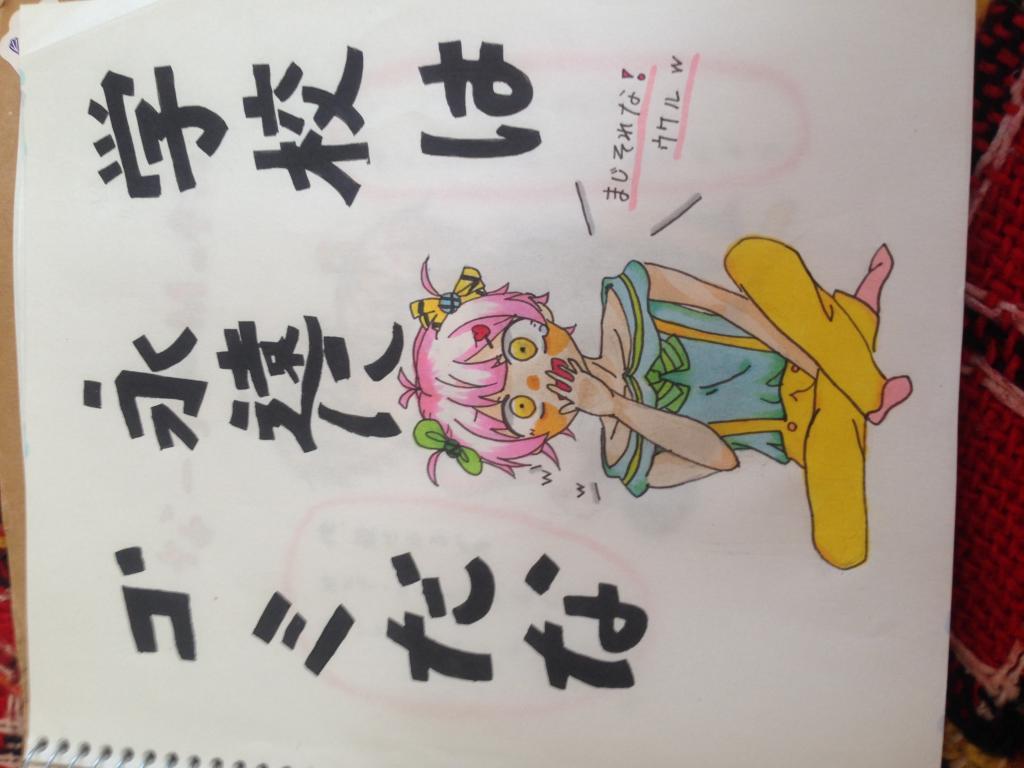 学校は
永遠に
ゴミだな
まじそれな!
ウケルw
w
w